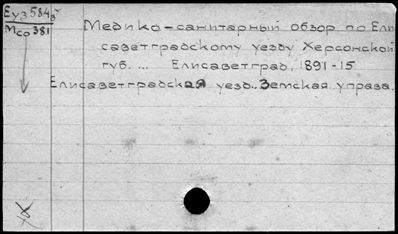 Еуз 584
Мсо 381
Медико-санитарный обзор по Ели
саветградскому уезду Херсонской
губ. ... Елисаветград, 1891-15
Елисаветградская уезд. Земская управа.